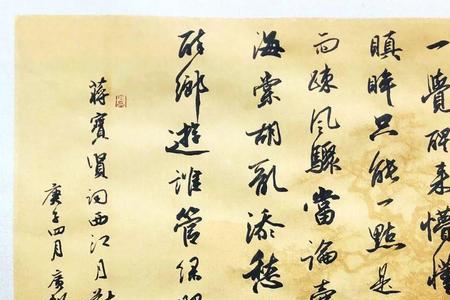 一覺来懵懂
瞋眸只能一點是
雨疎風驟當論
海棠胡亂添愁
醉鄉遊誰管綠肥
蔣寶賢詞西江月
庚子四月廣